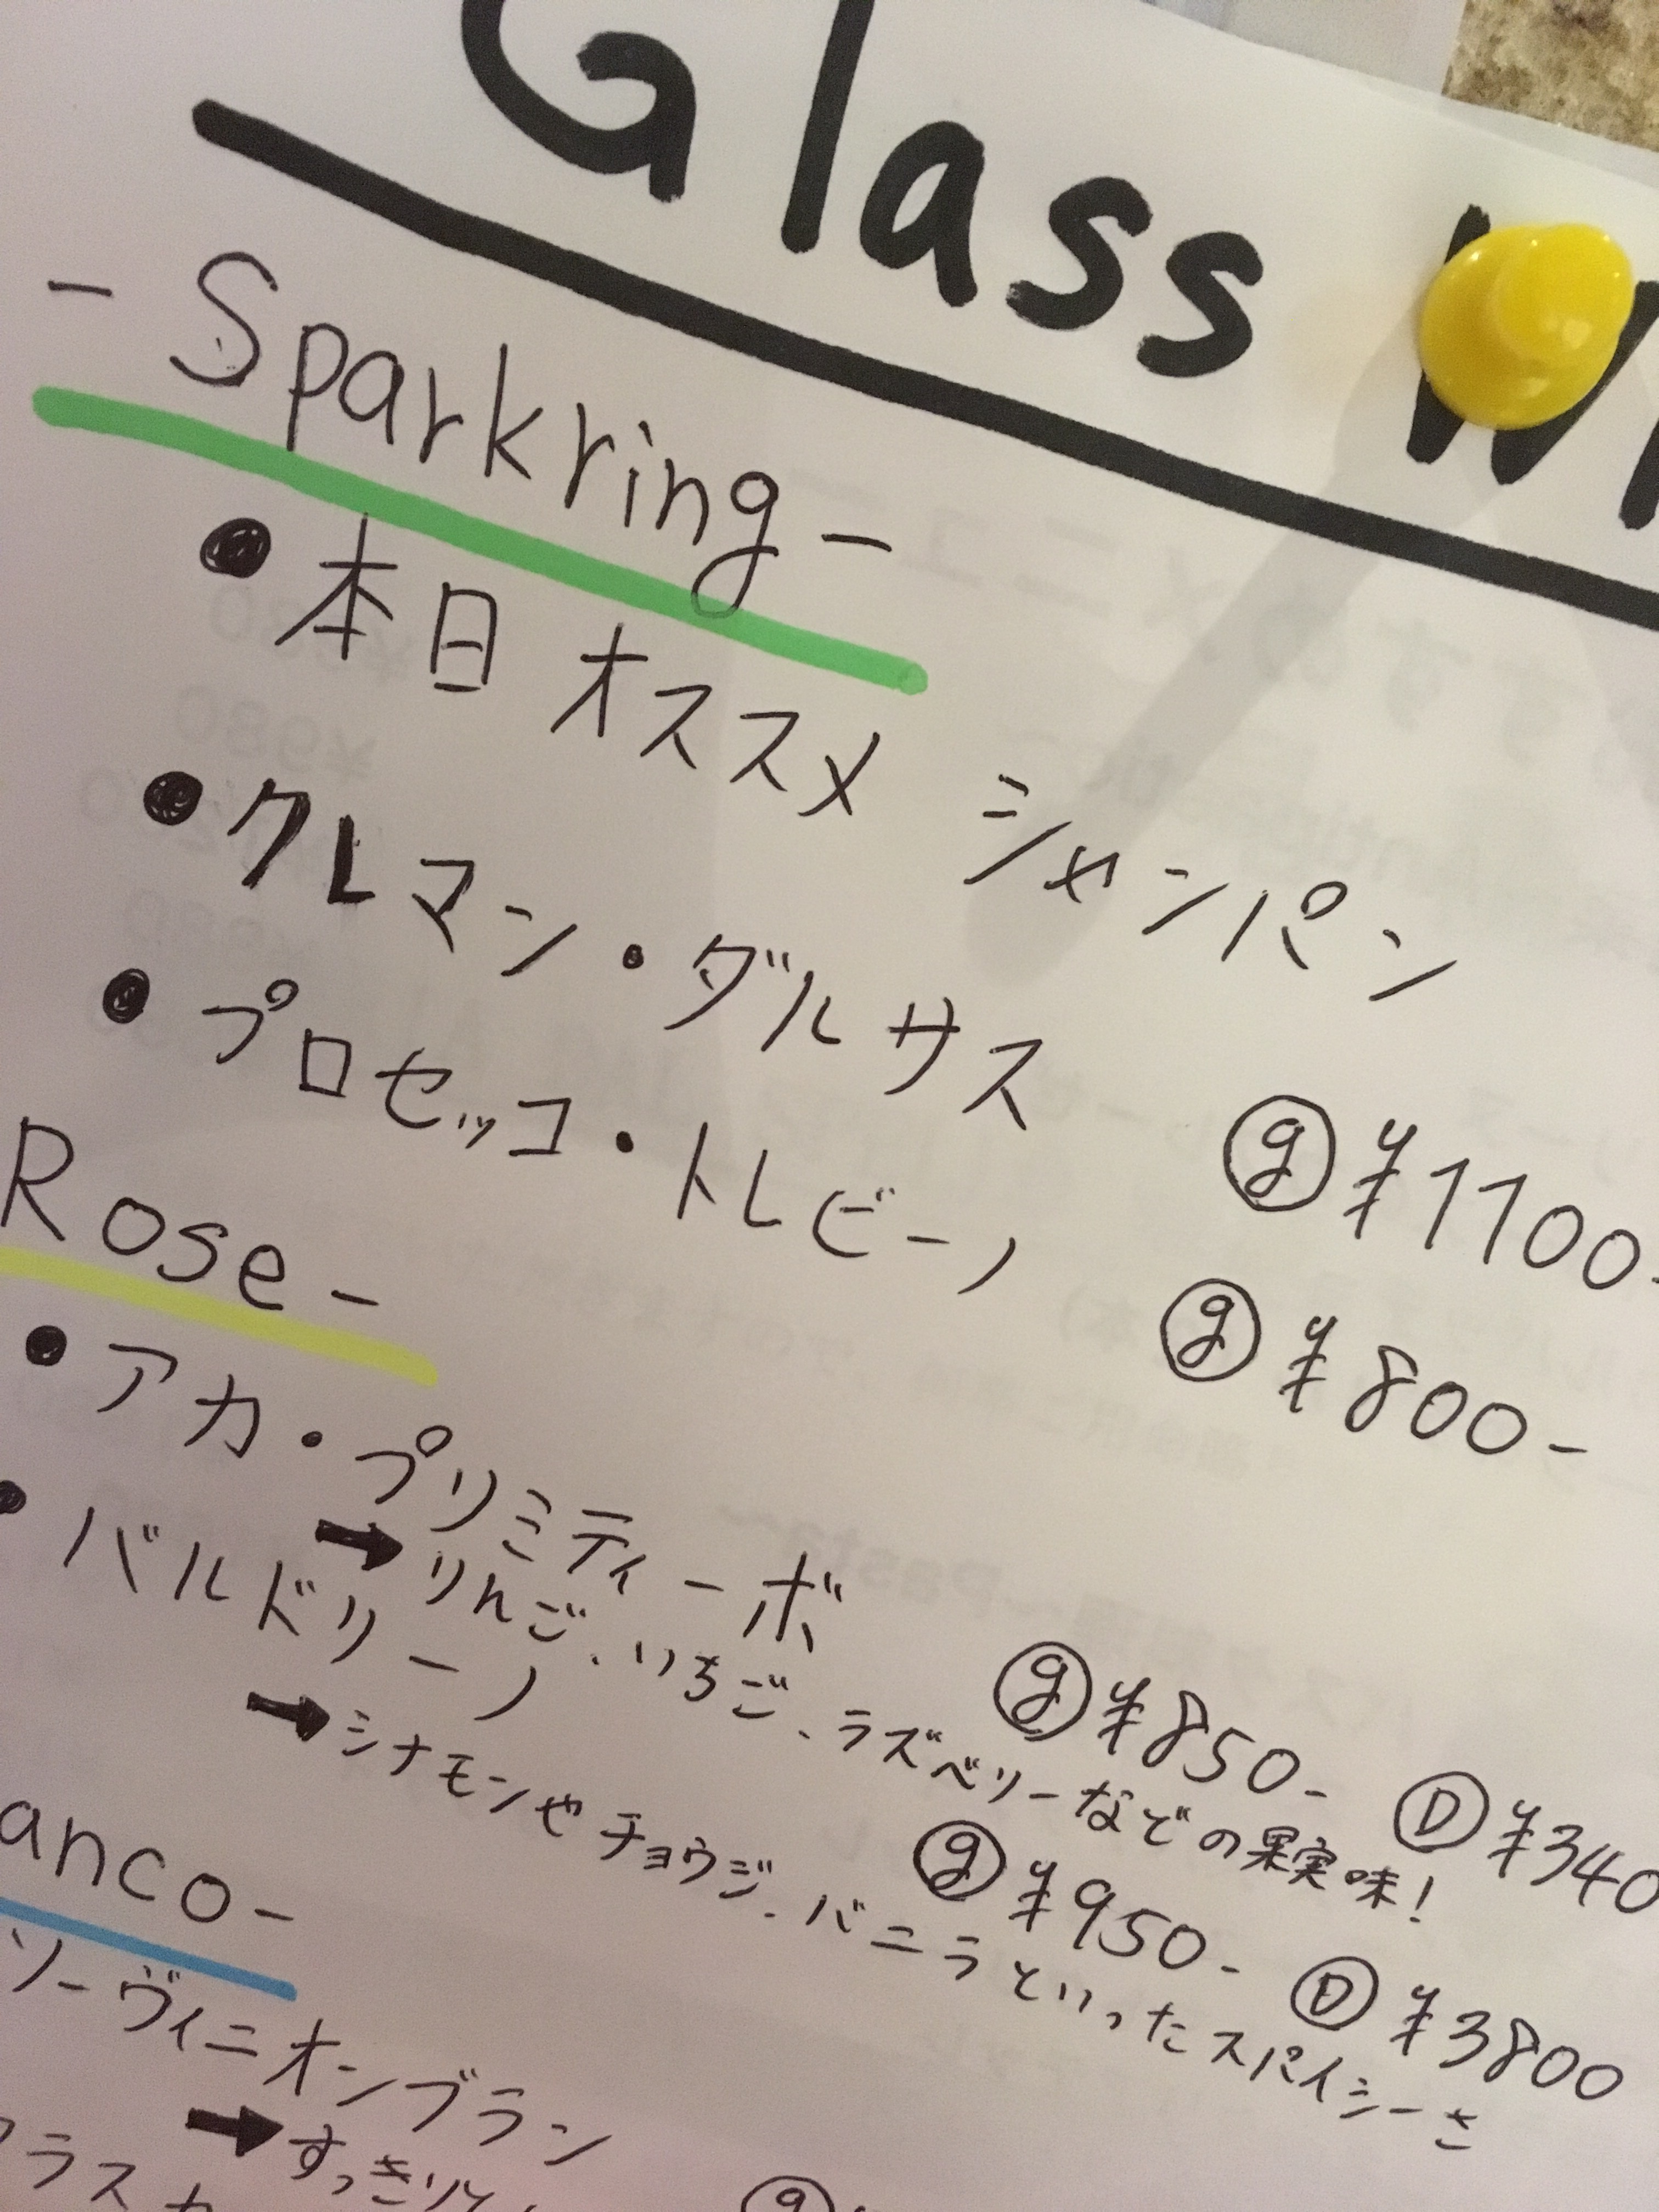 Glass
- Sparkring -
● 本日 オススメ シャンパン
● クレマン・ダルザス ⓖ ¥1100-
● プロセッコ・トレビーノ ⓖ ¥800-
Rose -
● アカ・プリミティーボ ⓖ ¥850- Ⓓ ¥340
➡ りんご、いちご、ラズベリーなどの果実味!
● バルドリーノ ⓖ ¥950- Ⓓ ¥3800
➡ シナモンやチョウジ、バニラといったスパイシーさ
anco -
ソーヴィニオンブラン
➡ すっきり
ラスカ